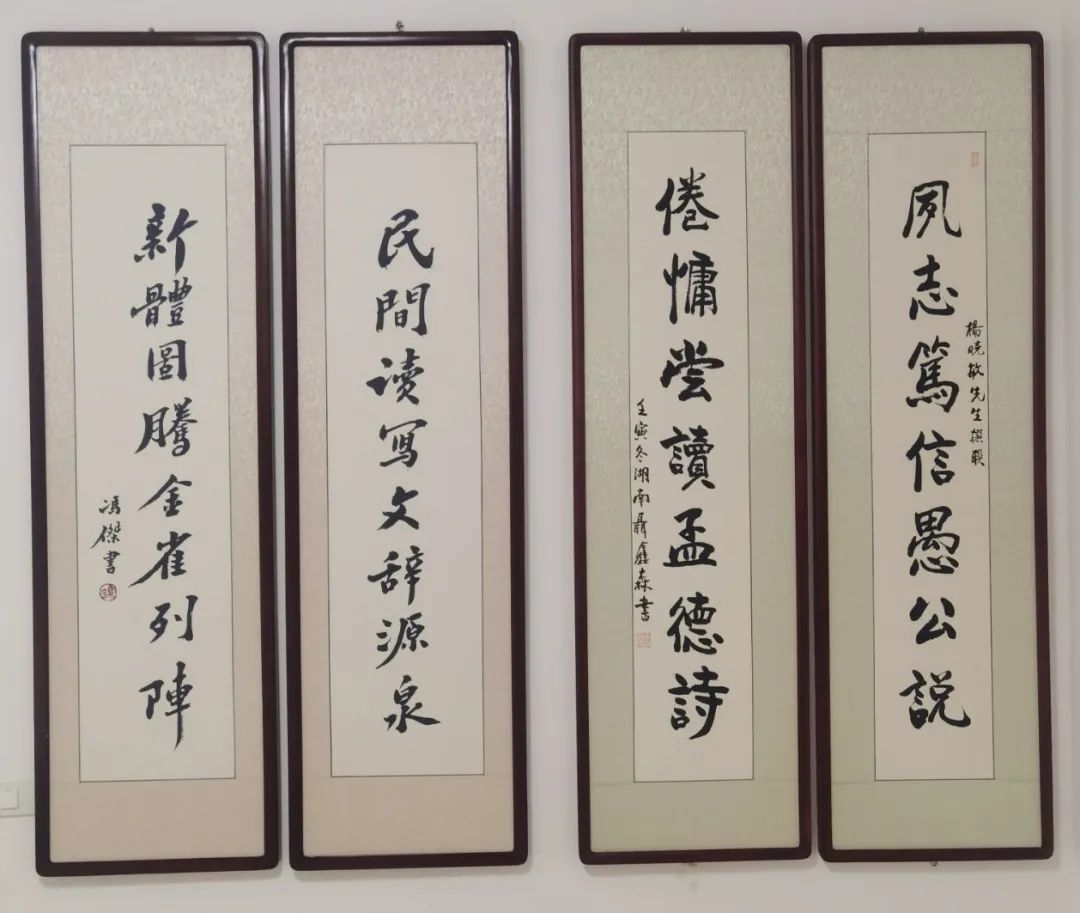 夙志篤信愚公説
楊晓敏先生撰联
倦慵尝讀孟德詩
壬寅冬湖南聶鑫森書
民間读寫文辞源泉
新體圖騰金雀列陣
馮傑書